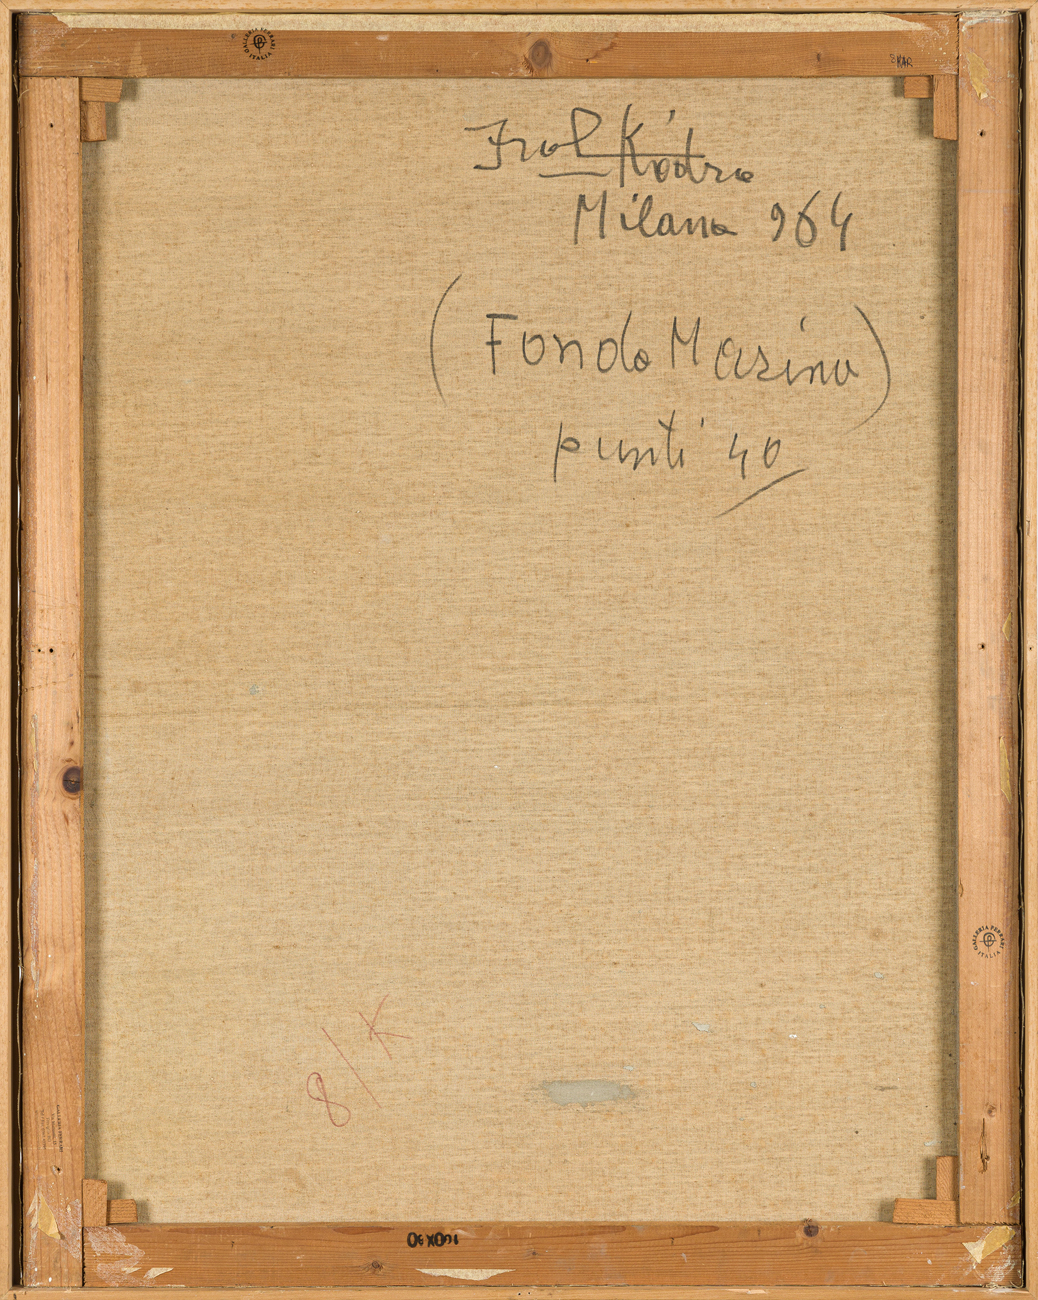 GALLERIA FERRARI
ITALIA
Ibrahim Kodra
Milano 964
(Fondo Marino)
punti 40
GALLERIA FERRARI
ITALIA
8/K
100X80